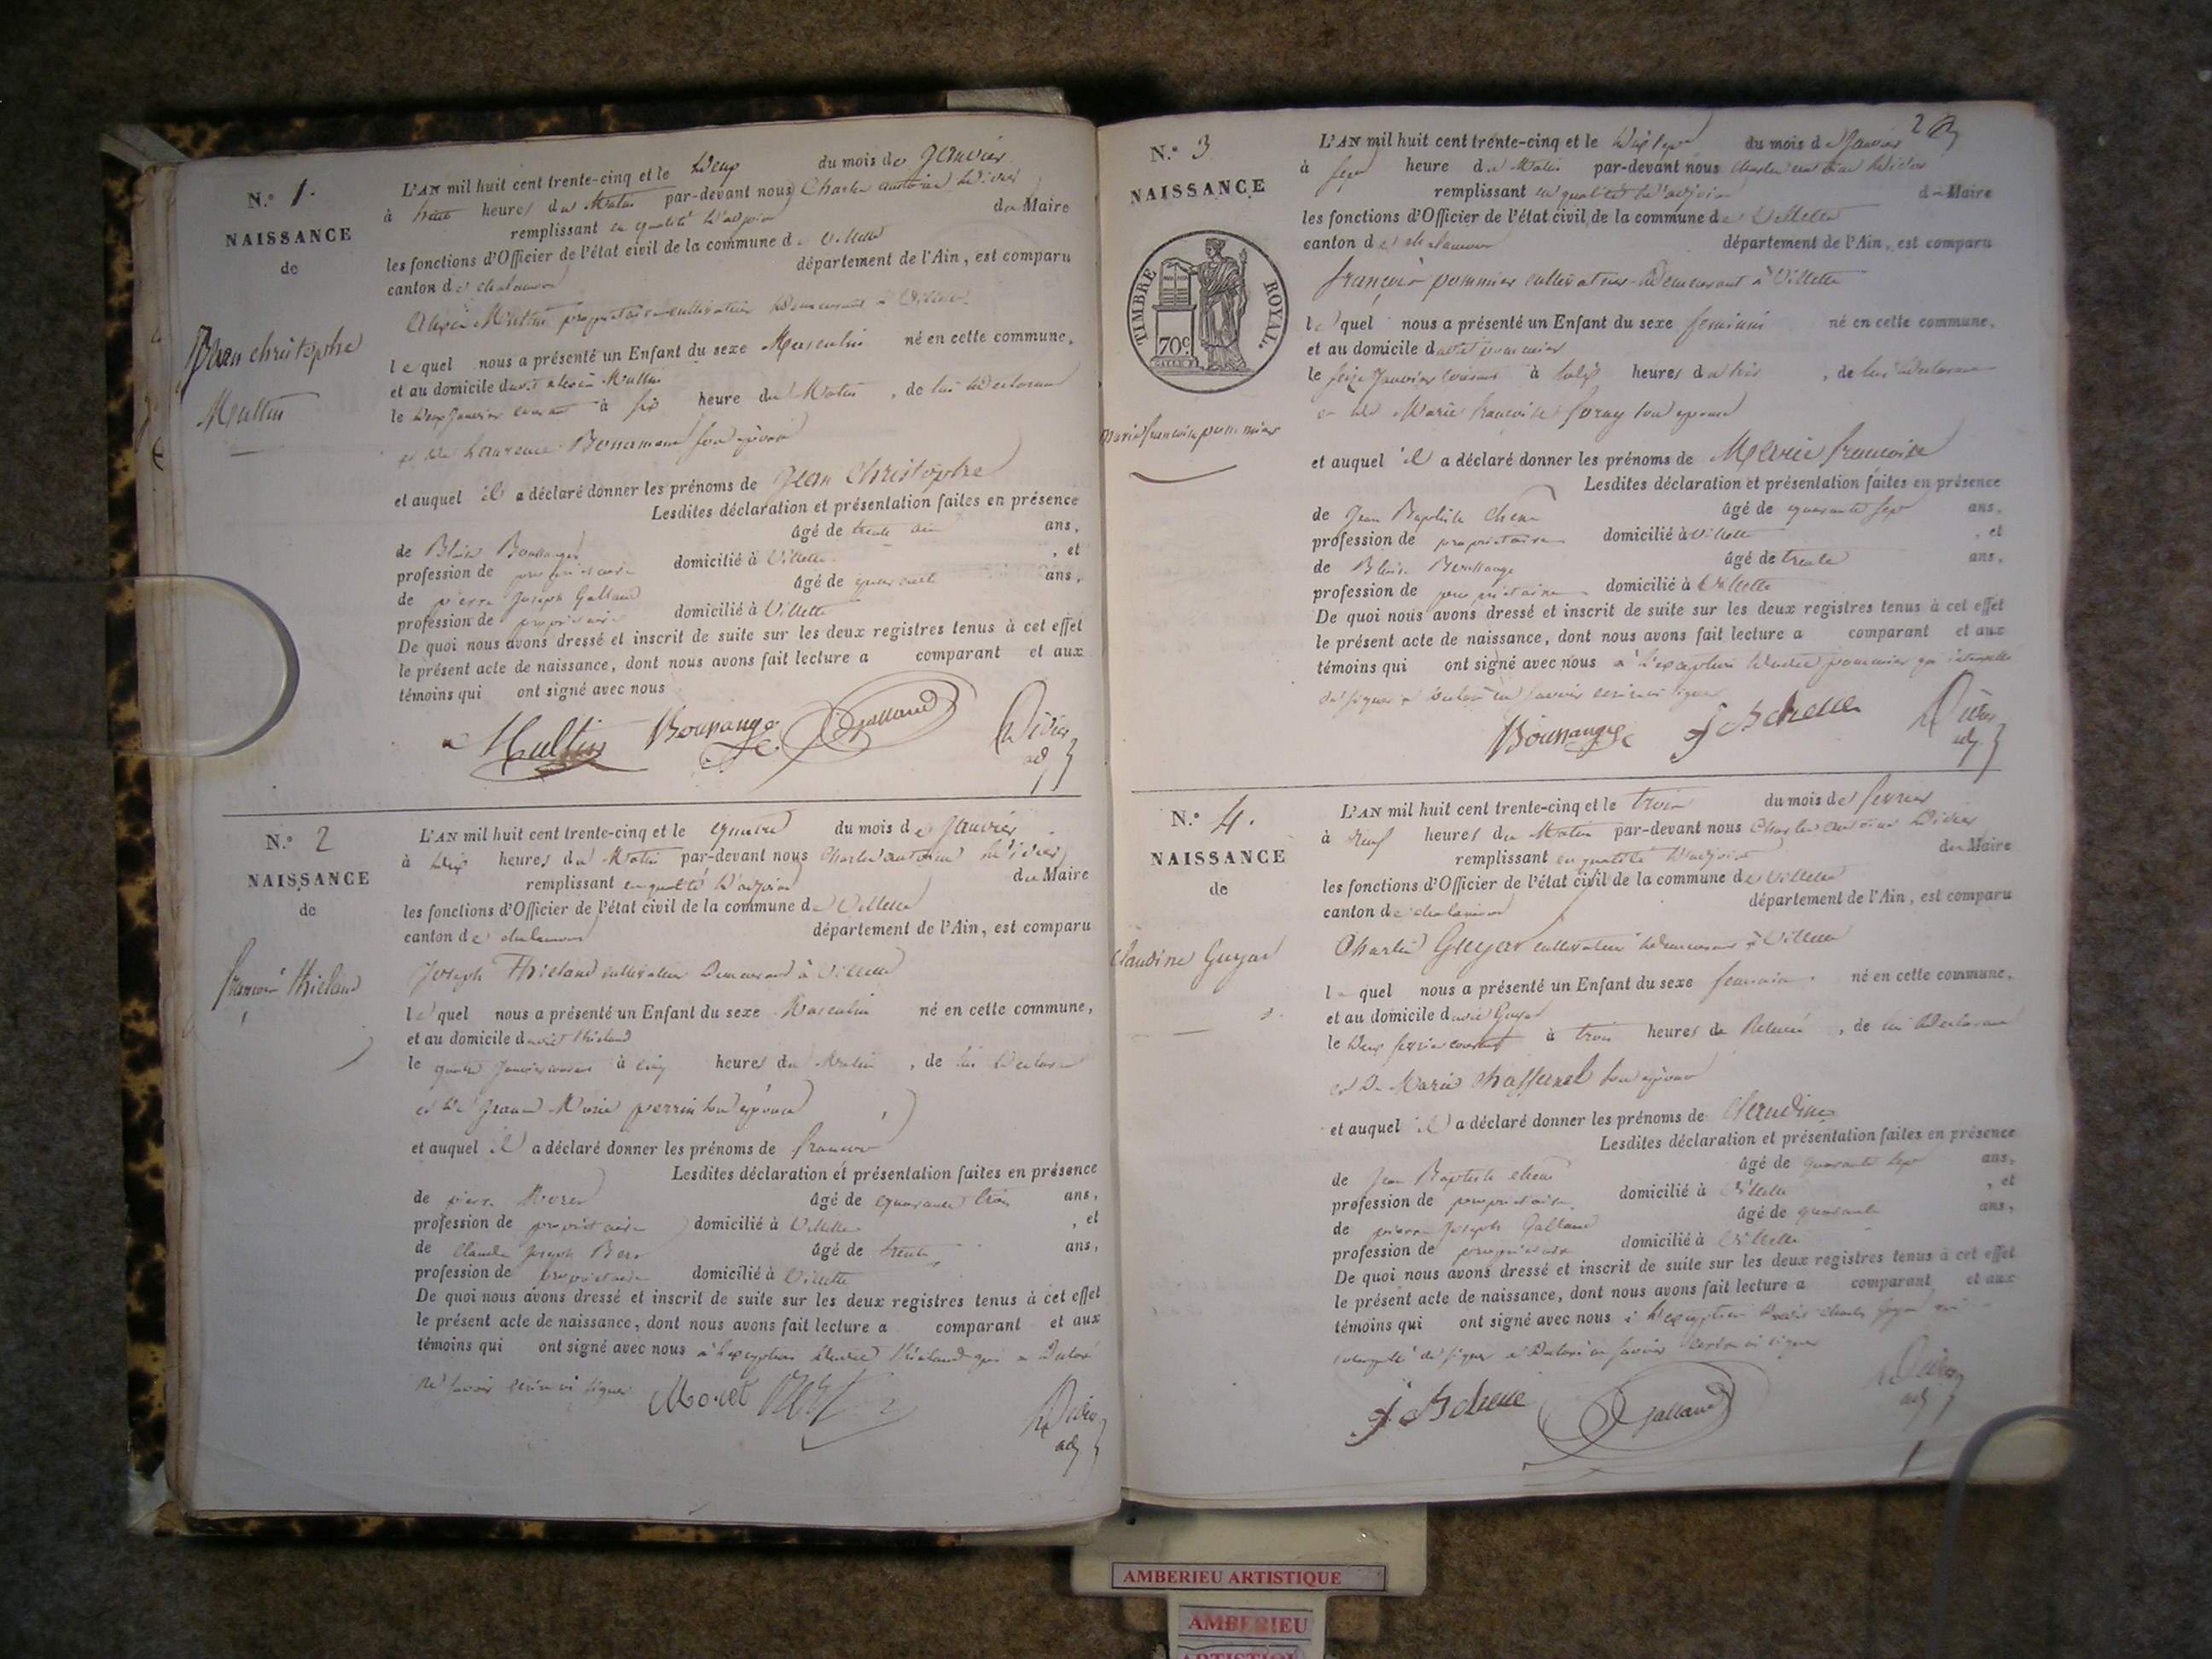 N.º 1.
NAISSANCE
de
Jean christophe
Multin
L'AN mil huit cent trente-cinq et le deux du mois de Janvier
à huit heures du Matin par-devant nous Charles antoine Didier
remplissant en qualité d'adjoint du Maire
les fonctions d'Officier de l'état civil de la commune de Villette
canton de chalamont département de l'Ain, est comparu
propriétaire cultivateur demeurant à Villette
lequel nous a présenté un Enfant du sexe Masculin né en cette commune,
et au domicile dudit Multin
le deux Janvier courant à six heure du Matin, de lui déclarant
et de Laurence Bonnamour son épouse
et auquel il a déclaré donner les prénoms de Jean Christophe
Lesdites déclaration et présentation faites en présence
de Blaise Boussange âgé de trente ans,
profession de propriétaire domicilié à Villette, et
de pierre Joseph Galland âgé de quarante ans,
profession de propriétaire domicilié à Villette
De quoi nous avons dressé et inscrit de suite sur les deux registres tenus à cet effet
le présent acte de naissance, dont nous avons fait lecture a comparant et aux
témoins qui ont signé avec nous
Multin Boussange Galland Didier
adj
N.º 2
NAISSANCE
de
françois thieland
L'AN mil huit cent trente-cinq et le quatre du mois de Janvier
à dix heures du Matin par-devant nous Charles antoine Didier
remplissant en qualité d'adjoint du Maire
les fonctions d'Officier de l'état civil de la commune de Villette
canton de chalamont département de l'Ain, est comparu
Joseph Thieland cultivateur demeurant à Villette
lequel nous a présenté un Enfant du sexe Masculin né en cette commune,
et au domicile dudit thieland
le quatre Janvier courant à cinq heures du Matin, de lui déclarant
et de Jeanne Marie perrin son épouse
et auquel il a déclaré donner les prénoms de françois
Lesdites déclaration et présentation faites en présence
de pierre Morel âgé de quarante trois ans,
profession de propriétaire domicilié à Villette, et
de Claude Joseph âgé de trente ans,
profession de propriétaire domicilié à Villette
De quoi nous avons dressé et inscrit de suite sur les deux registres tenus à cet effet
le présent acte de naissance, dont nous avons fait lecture a comparant et aux
témoins qui ont signé avec nous à l'exception dudit thieland qui a déclaré
ne savoir écrire ni signer
Morel Didier
adj
2
N.º 3
NAISSANCE
TIMBRE ROYAL.
70c
Marie francoise pommier
L'AN mil huit cent trente-cinq et le dix sept du mois de Janvier
à sept heure du Matin par-devant nous Charles antoine Didier
remplissant en qualité d'adjoint du Maire
les fonctions d'Officier de l'état civil de la commune de Villette
canton de chalamont département de l'Ain, est comparu
françois pommier cultivateur demeurant à Villette
lequel nous a présenté un Enfant du sexe feminin né en cette commune,
et au domicile dudit pommier
le seize Janvier courant à heures du soir, de lui déclarant
et de Marie francoise son épouse
et auquel il a déclaré donner les prénoms de Marie francoise
Lesdites déclaration et présentation faites en présence
de Jean Baptiste Chene âgé de quarante sept ans,
profession de propriétaire domicilié à Villette, et
de Blaise Boussange âgé de trente ans,
profession de propriétaire domicilié à Villette
De quoi nous avons dressé et inscrit de suite sur les deux registres tenus à cet effet
le présent acte de naissance, dont nous avons fait lecture a comparant et aux
témoins qui ont signé avec nous à l'exception dudit pommier qui interpellé
de signer a déclaré ne savoir écrire ni signer
Boussange J B chene Didier
adj
N.º 4.
NAISSANCE
de
Claudine Guyat
L'AN mil huit cent trente-cinq et le trois du mois de fevrier
à neuf heures du Matin par-devant nous Charles antoine Didier
remplissant en qualité d'adjoint du Maire
les fonctions d'Officier de l'état civil de la commune de Villette
canton de chalamont département de l'Ain, est comparu
Charles Guyat cultivateur demeurant à Villette
lequel nous a présenté un Enfant du sexe feminin né en cette commune,
et au domicile dudit Guyat
le deux fevrier courant à trois heures de Relevé, de lui déclarant
et de Marie Chaffanel son épouse
et auquel il a déclaré donner les prénoms de Claudine
Lesdites déclaration et présentation faites en présence
de Jean Baptiste chene âgé de quarante sept ans,
profession de propriétaire domicilié à Villette, et
de pierre Joseph Galland âgé de quarante ans,
profession de propriétaire domicilié à Villette
De quoi nous avons dressé et inscrit de suite sur les deux registres tenus à cet effet
le présent acte de naissance, dont nous avons fait lecture a comparant et aux
témoins qui ont signé avec nous à l'exception dudit Charles Guyat qui
interpellé de signer a déclaré ne savoir écrire ni signer
J B chene Galland Didier
adj
AMBERIEU ARTISTIQUE
AMBERIEU
ARTISTIQUE